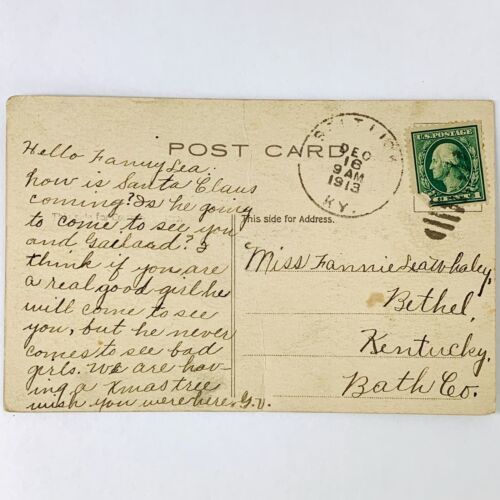 POST CARD
SALT LICK
DEC
16
9 AM
1913
KY.
U.S. POSTAGE
Hello Fanny Lea.
how is Santa Claus
coming? Is he going
to come to see you
and Gaitaard? I
think if you are
a real good girl he
will come to see
you, but he never
comes to see bad
girls. We are hav-
ing a Xmas tree
wish you were here. G.V.
This side for Address.
Miss Fannie Lea Whaley,
Bethel,
Kentucky.
Bath Co.